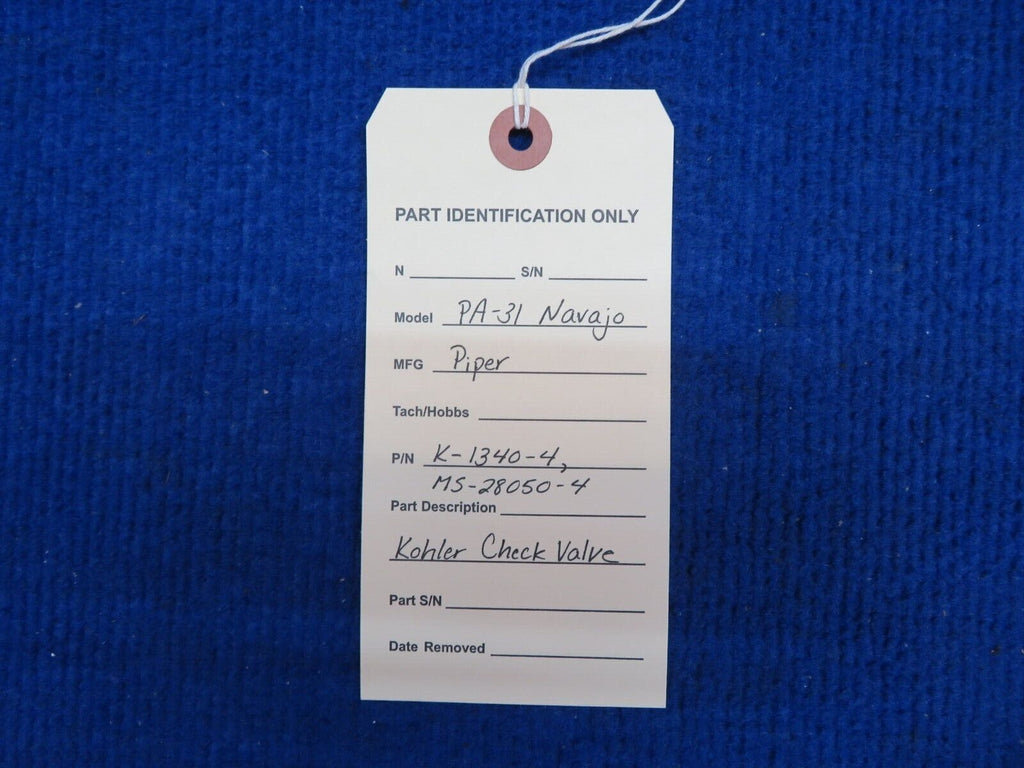 PART IDENTIFICATION ONLY
N S/N
Model PA-31 Navajo
MFG Piper
Tach/Hobbs
P/N K-1340-4,
MS-28050-4
Part Description
Kohler Check Valve
Part S/N
Date Removed